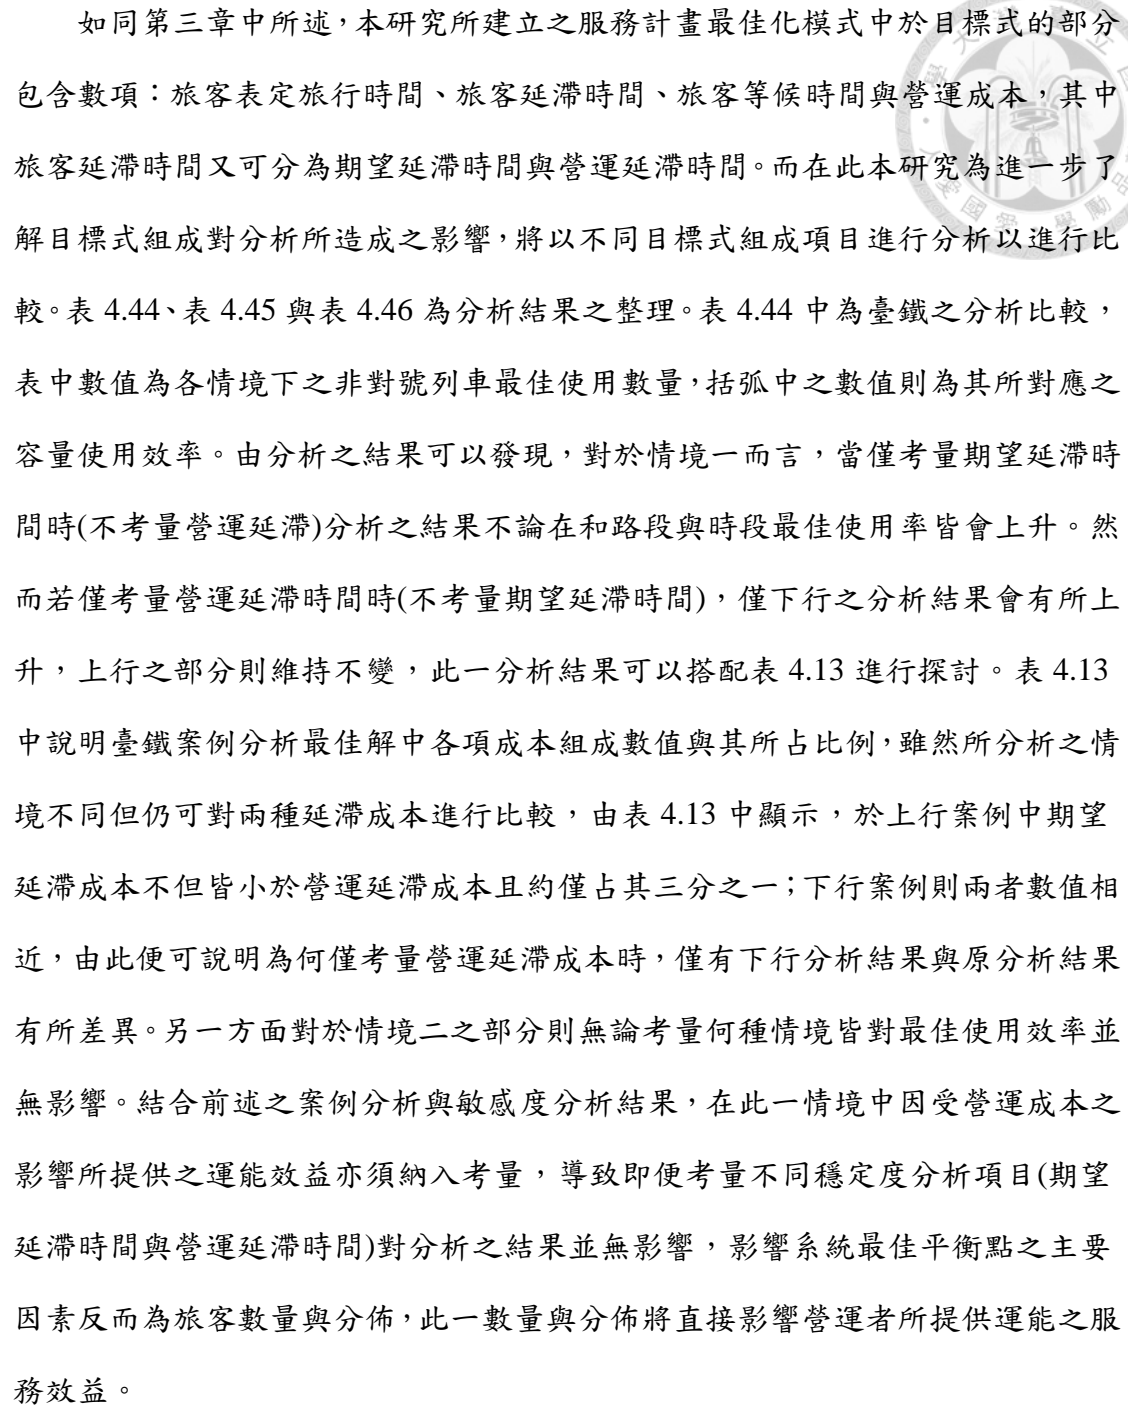 如同第三章中所述，本研究所建立之服務計畫最佳化模式中於目標式的部分
包含數項：旅客表定旅行時間、旅客延滯時間、旅客等候時間與營運成本，其中
旅客延滯時間又可分為期望延滯時間與營運延滯時間。而在此本研究為進一步了
解目標式組成對分析所造成之影響，將以不同目標式組成項目進行分析以進行比
較。表 4.44、表 4.45 與表 4.46 為分析結果之整理。表 4.44 中為臺鐵之分析比較，
表中數值為各情境下之非對號列車最佳使用數量，括弧中之數值則為其所對應之
容量使用效率。由分析之結果可以發現，對於情境一而言，當僅考量期望延滯時
間時(不考量營運延滯)分析之結果不論在和路段與時段最佳使用率皆會上升。然
而若僅考量營運延滯時間時(不考量期望延滯時間)，僅下行之分析結果會有所上
升，上行之部分則維持不變，此一分析結果可以搭配表 4.13 進行探討。表 4.13
中說明臺鐵案例分析最佳解中各項成本組成數值與其所占比例，雖然所分析之情
境不同但仍可對兩種延滯成本進行比較，由表 4.13 中顯示，於上行案例中期望
延滯成本不但皆小於營運延滯成本且約僅占其三分之一；下行案例則兩者數值相
近，由此便可說明為何僅考量營運延滯成本時，僅有下行分析結果與原分析結果
有所差異。另一方面對於情境二之部分則無論考量何種情境皆對最佳使用效率並
無影響。結合前述之案例分析與敏感度分析結果，在此一情境中因受營運成本之
影響所提供之運能效益亦須納入考量，導致即便考量不同穩定度分析項目(期望
延滯時間與營運延滯時間)對分析之結果並無影響，影響系統最佳平衡點之主要
因素反而為旅客數量與分佈，此一數量與分佈將直接影響營運者所提供運能之服
務效益。